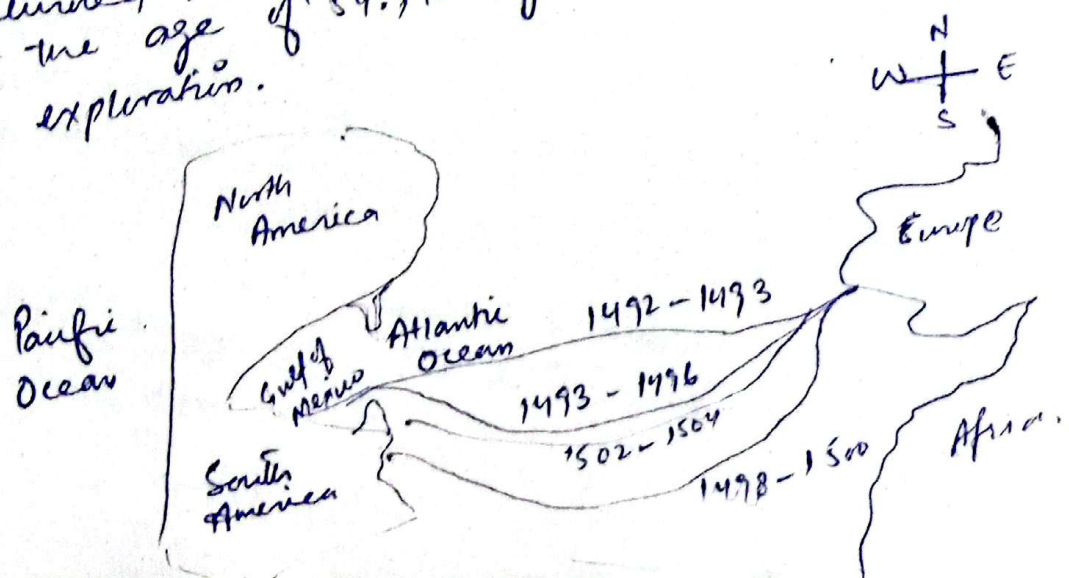 the age of 54.,
exploration.
N
W E
S
North
America
Europe
Pacific
Ocean
Atlantic
Ocean
1492-1493
Gulf of
Mexico
1493-1496
1502-1504
1498-1500
Africa.
South
America